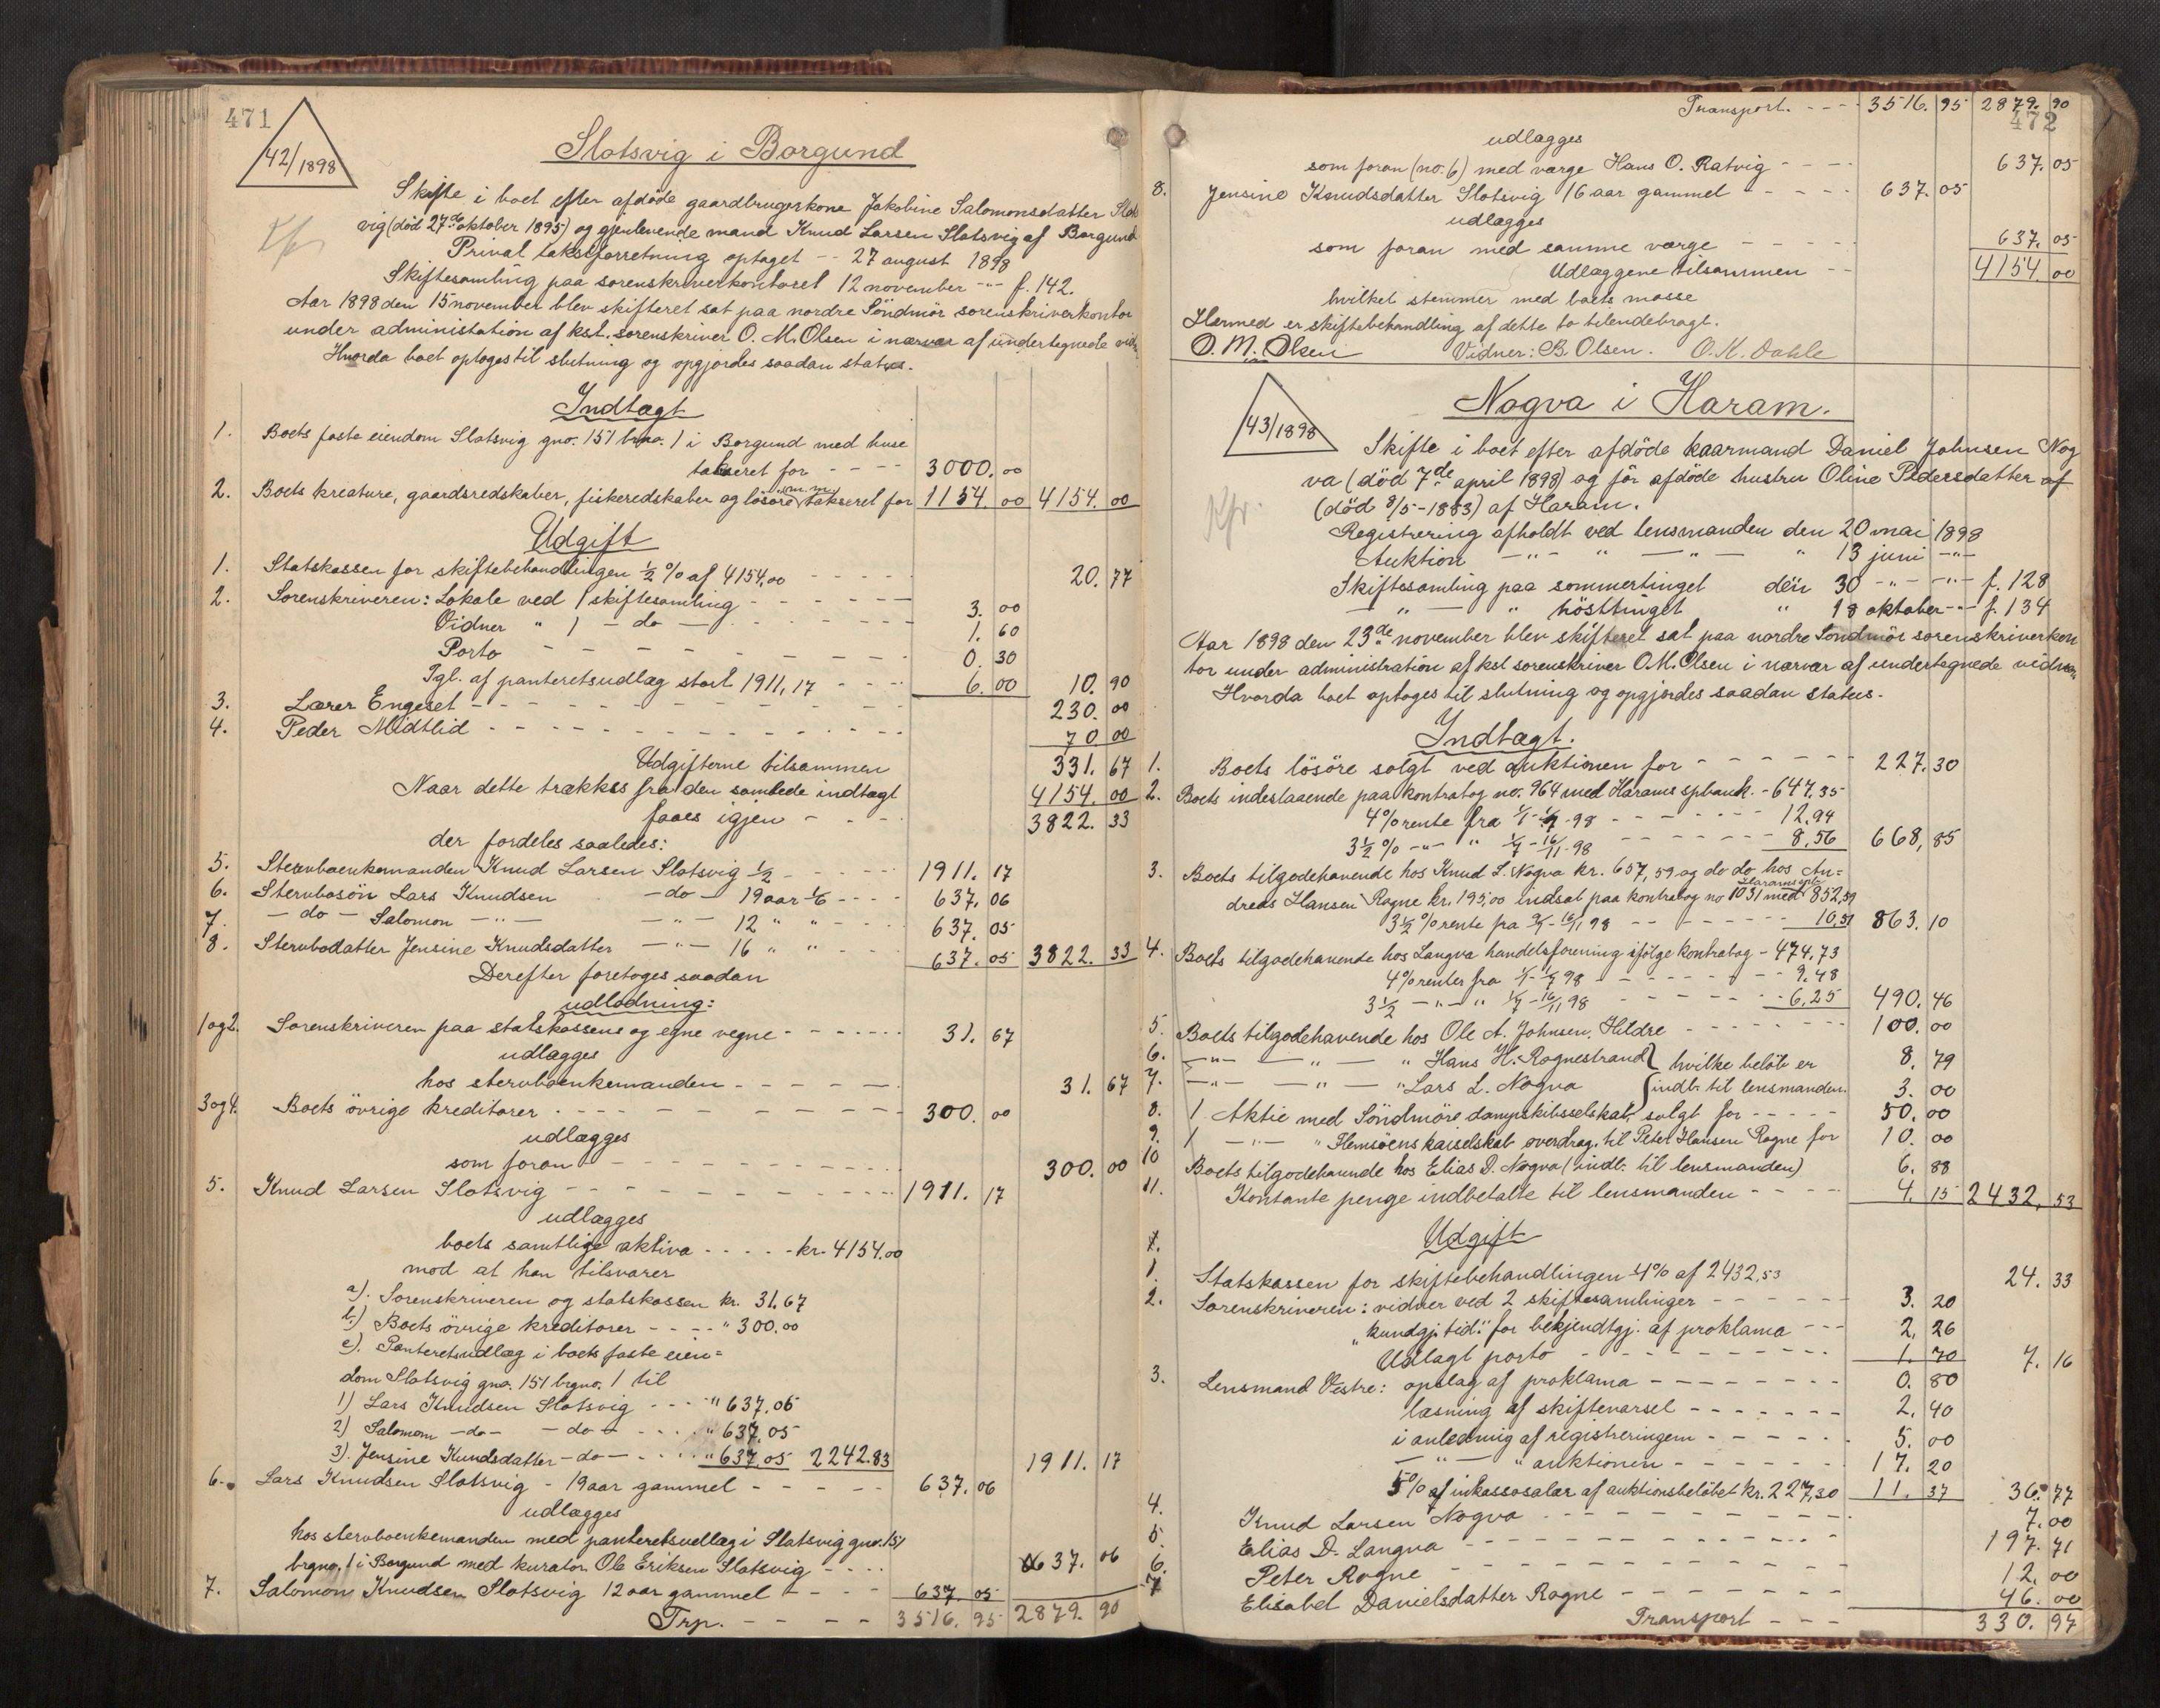 471
42/1898
Slotsvig i Borgund
Skifte i boet efter afdöde gaardbrugerkone Jakobine Salomonsdatter Slots
vig (död 27de oktober 1895) og gjenlevende mand Knud Larsen Slotsvig af Borgund
Privat takstforretning optaget -- 27 august 1898
Skiftesamling paa sorenskriverkontoret 12 november -"- f. 142.
Aar 1898 den 15 november blev skifteret sat paa nordre Söndmör sorenskriverkontor
under administation af kst. sorenskriver O. M. Olsen i nærvær af undertegnede vidn
Hvorda boet optoges til slutning og opgjordes saadan status.
Indtægt
1. Boets faste eiendom Slotsvig gno. 151 brno. 1 i Borgund med huse
takseret for - - - - 3000. 00
2. Boets kreature, gaardsredskaber, fiskeredskaber og lösöre m.m. takseret for 1154. 00 4154. 00
Udgift
1. Statskassen for skiftebehandlingen ½ % af 4154,00 - - - - 20. 77
2. Sorenskriveren: Lokale ved 1 skiftesamling - - - - 3. 00
Vidner " 1 - do - - - - - 1. 60
Porto - - - - 0. 30
Tgl. af panteretsudlæg stort 1911,17 - - - 6. 00 10. 90
3. Lærer Engeset - - - - 230. 00
4. Peder Midtlid - - - - 70 00
Udgifterne tilsammen 331. 67
Naar dette trækkes fra den samlede indtægt 4154. 00
faaes igjen - - - 3822. 33
der fordeles saaledes:
5. Stervboenkemanden Knud Larsen Slotsvig ½ - - - - 1911. 17
6. Stervbosön Lars Knudsen - do - 19 aar 1/6 - - - - 637. 06
7. - do - Salomon - " - - " - 12 " " - - - 637. 05
8. Stervbodatter Jensine Knudsdatter - " - 16 " " - - 637. 05 3822. 33
Derefter foretoges saadan
udlodning:
1 og 2. Sorenskriveren paa statskassens og egne vegne - - - - 31. 67
udlægges
hos stervboenkemanden - - - - 31. 67
3 og 4. Boets övrige kreditorer - - - - 300. 00
udlægges
som foran - - - - 300. 00
5. Knud Larsen Slotsvig - - - - 1911. 17
udlægges
boets samtlige aktiva - - - - kr. 4154.00
mod at han tilsvarer
a). Sorenskriveren og statskassen kr. 31.67
b.) Boets övrige kreditorer - - - - " 300.00
c). Panteretsudlæg i boets faste eien=
dom Slotsvig gno. 151 brgno. 1 til
1) Lars Knudsen Slotsvig - - - " 637.06
2) Salomon - do - - do - - - - " 637.05
3). Jensine Knudsdatter - do - - - - " 637.05 2242.83 1911. 17
6. Lars Knudsen Slotsvig - 19 aar gammel - - - - 637. 06
udlægges
hos stervboenkemanden med panteretsudlæg i Slotsvig gno. 151
brgno. 1 i Borgund med kurator Ole Eriksen Slotsvig - - - - 637. 06
7. Salomon Knudsen Slotsvig 12 aar gammel - - - - 637. 05
Trp. - - - - 3516. 95 2879. 90
Transport. - - - - 3516. 95 2879. 90
472
udlægges
som foran (no. 6) med værge Hans O. Ratvig - - - - 637. 05
8. Jensine Knudsdatter Slotsvig 16 aar gammel - - - - 637. 05
udlægges
som foran med samme værge - - - - 637. 05
Udlæggene tilsammen - - 4154. 00
hvilket stemmer med boets masse
Hermed er skiftebehandling af dette bo tilendebragt.
O. M. Olsen Vidner: B. Olsen. O. K. Dahle
43/1898
Nogva i Haram.
Kfr.
Skifte i boet efter afdöde kaarmand Daniel Johnsen Nog
va (död 7de april 1898) og för afdöde hustru Oline Pedersdatter af
(död 8/5-1883) af Haram.
Registrering afholdt ved lensmanden den 20 mai 1898
Auktion - " - " - " - " 13 juni - " -
Skiftesamling paa sommertinget den 30 - " - - " - f. 128
- " - " hösttinget " 18 oktober - " - f. 134
Aar 1898 den 23de november blev skifteret sat paa nordre Söndmör sorenskriverkon
tor under administration af kst sorenskriver O. M. Olsen i nærvær af undertegnede vidner
Hvorda boet optoges til slutning og opgjordes saadan status.
Indtægt.
1. Boets lösöre solgt ved auktionen for - - - - 227. 30
2. Boets indestaaende paa kontrabog no. 964 med Harams spbank. - 647,35
4% rente fra 1/1-1/7-98 - - - - 12,94
3½ % - " - " 1/7-16/11-98 - - - - 8,56 668, 85
3. Boets tilgodehavende hos Knud L. Nogva kr. 657,59 og do do hos An=
dreas Hansen Rogne kr. 195,00 indsat paa kontrabog no 1031 med Harams spb. 852,59
3½ % rente fra 9/7-16/11 98 - - - - 10,51 863. 10
4. Boets tilgodehavende hos Langva handelsforening ifölge kontrabog - 474,73
4% renter fra 1/1-1/7 98 - - - - 9.48
3½ - " - " 1/7-16/11 98 - - - - 6,25 490. 46
5. Boets tilgodehavende hos Ole A. Johnsen, Hildre - - - - 100. 00
6. - " - - " - " Hans H. Rognestrand } hvilke belöb er 8. 79
7. - " - - " - " Lars L. Nogva { indb. til lensmanden. 3. 00
8. 1 Aktie med Söndmöre dampskibsselskab, solgt for - - - - 50. 00
9. 1 - " - " Flemsöens kaiselskab overdrag. til Peter Hansen Rogne for 10. 00
10 Boets tilgodehavende hos Elias D. Nogva (indb. til lensmanden) 6. 88
11. Kontante penge indbetalte til lensmanden - - - - 4. 15 2432, 53
Udgift
1. Statskassen for skiftebehandlingen 1% af 2432,53 24. 33
2. Sorenskriveren: vidner ved 2 skiftesamlinger - - - - 3. 20
"kundgj. tid." for bekjendtgj. af proklama - - - 2, 26
Udlagt porto - - - - 1. 70 7. 16
3. Lensmand Vestre: opslag af proklama - - - - 0. 80
læsning af skiftevarsel - - - - 2. 40
i anledning af registreringen - - - - 5. 00
- " - " auktionen - - - - 17. 20
5% af inkassosalær af auktionsbelöbet kr. 227,30 11. 37 36. 77
4. Knud Larsen Nogva - - - - 7. 00
5. Elias D. Langva - - - - 197. 71
6. Peter Rogne - - - - 12. 00
7 Elisabet Danielsdatter Rogne - - - - 46. 00
Transport - - - 330. 97